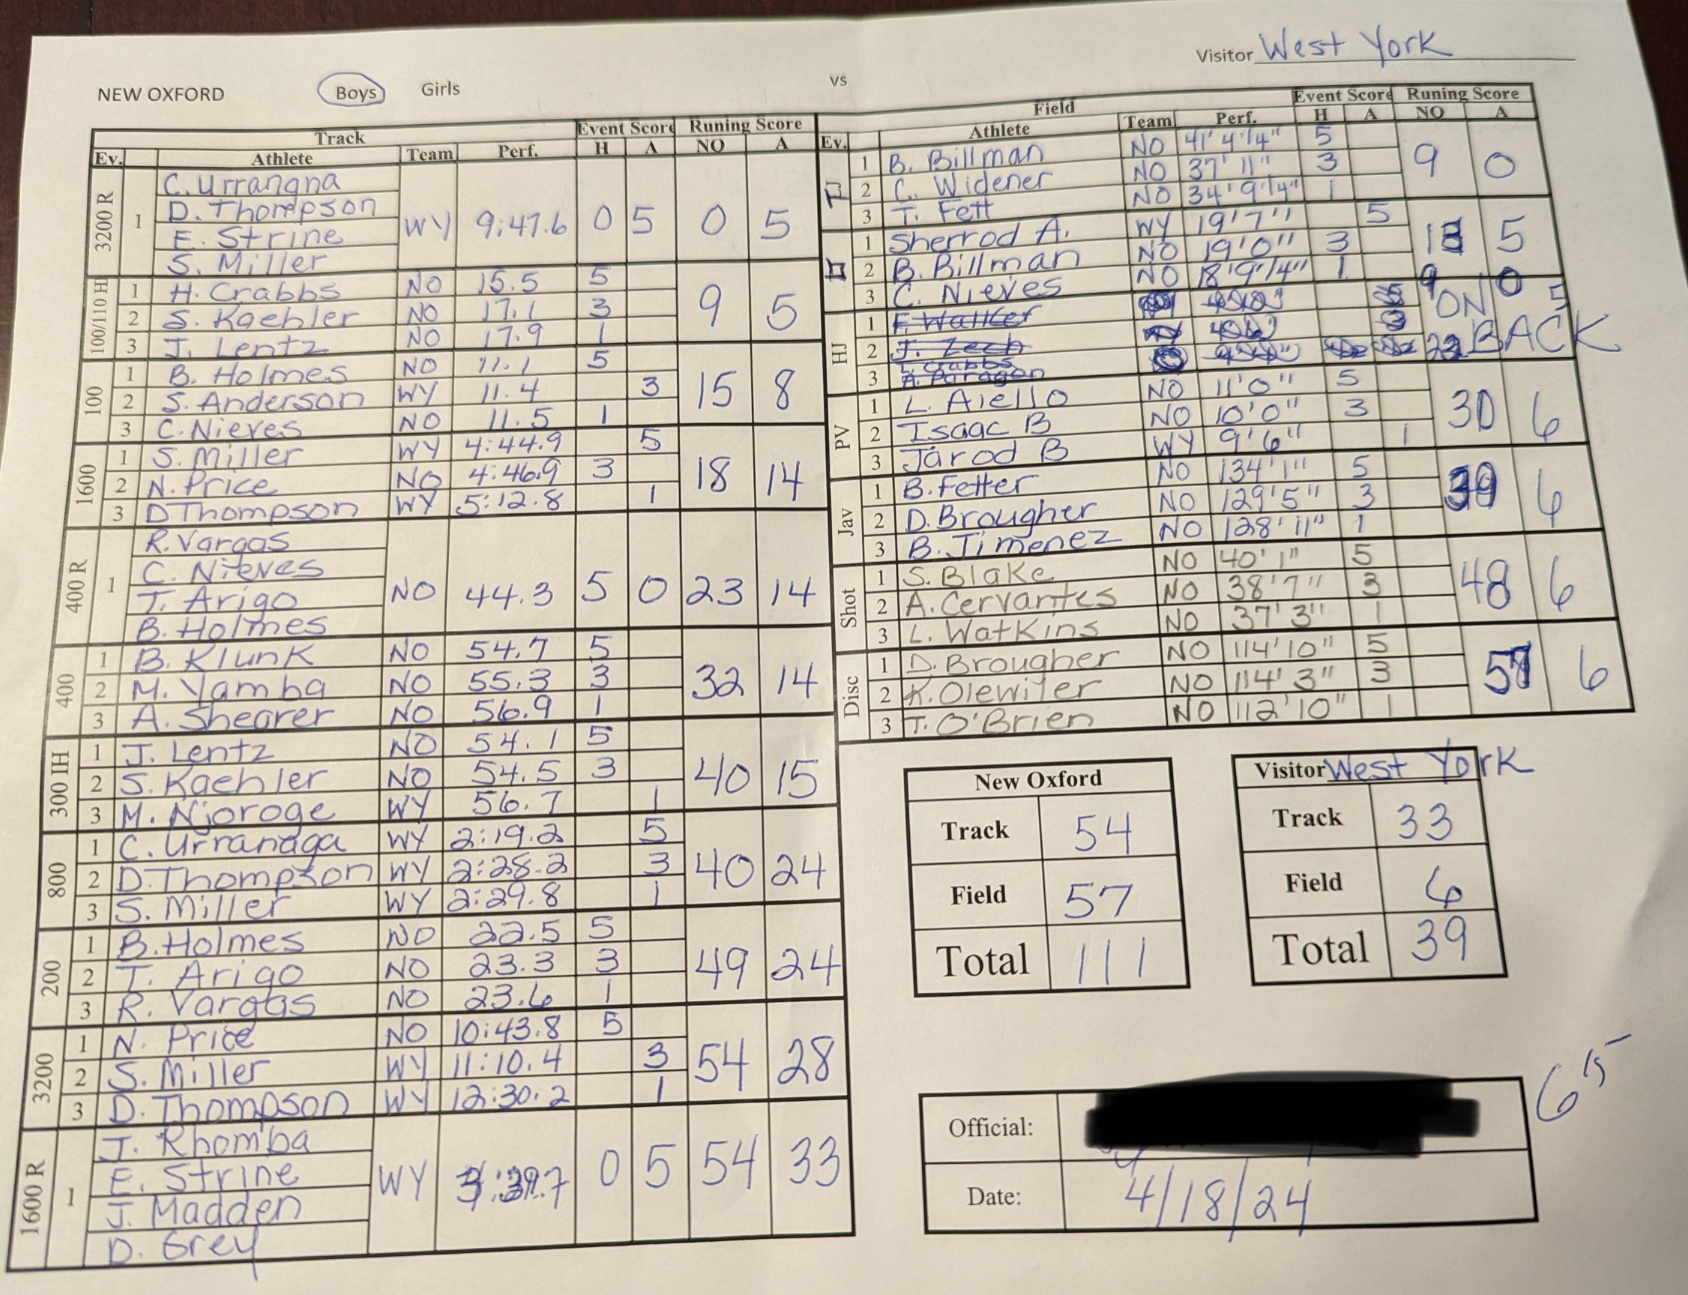 Visitor West York
NEW OXFORD Boys Girls vs
Track Event Score Runing Score
Ev. Athlete Team Perf. H A NO A
3200 R 1 C. Urrangna WY 9:47.6 0 5 0 5
D. Thompson
E. Strine
S. Miller
100/110 H 1 H. Crabbs NO 15.5 5 9 5
2 S. Kaehler NO 17.1 3
3 J. Lentz NO 17.9 1
100 1 B. Holmes NO 11.1 5 15 8
2 S. Anderson WY 11.4 3
3 C. Nieves NO 11.5 1
1600 1 S. Miller WY 4:44.9 5 18 14
2 N. Price NO 4:46.9 3
3 D Thompson WY 5:12.8 1
400 R 1 R. Vargas NO 44.3 5 0 23 14
C. Nieves
T. Arigo
B. Holmes
400 1 B. Klunk NO 54.7 5 32 14
2 M. Yamba NO 55.3 3
3 A. Shearer NO 56.9 1
300 IH 1 J. Lentz NO 54.1 5 40 15
2 S. Kaehler NO 54.5 3
3 M. Njoroge WY 56.7 1
800 1 C. Urranaga WY 2:19.2 5 40 24
2 D. Thompson WY 2:28.2 3
3 S. Miller WY 2:29.8 1
200 1 B. Holmes NO 22.5 5 49 24
2 T. Arigo NO 23.3 3
3 R. Vargas NO 23.6 1
3200 1 N. Price NO 10:43.8 5 54 28
2 S. Miller WY 11:10.4 3
3 D. Thompson WY 12:30.2 1
1600 R 1 J. Rhomba WY 0 5 54 33
E. Strine
J. Madden
D. Grey
Field Event Score Runing Score
Ev. Athlete Team Perf. H A NO A
TJ 1 B. Billman NO 41' 4 1/4" 5 9 0
2 C. Widener NO 37' 11" 3
3 T. Fett NO 34' 9 1/4" 1
LJ 1 Sherrod A. WY 19' 7" 5 5
2 B. Billman NO 19' 0" 3
3 C. Nieves NO 18' 9 1/4" 1
HJ 1 F. Walker ON
2 J. Zech BACK
3 A. Paragon
PV 1 L. Aiello NO 11' 0" 5 30 6
2 Isaac B NO 10' 0" 3
3 Jarod B WY 9' 6" 1
Jav 1 B. Fetter NO 134' 1" 5 39 6
2 D. Brougher NO 129' 5" 3
3 B. Jimenez NO 128' 11" 1
Shot 1 S. Blake NO 40' 1" 5 48 6
2 A. Cervantes NO 38' 7" 3
3 L. Watkins NO 37' 3" 1
Disc 1 D. Brougher NO 114' 10" 5 57 6
2 K. Olewiler NO 114' 3" 3
3 T. O'Brien NO 112' 10" 1
New Oxford
Track 54
Field 57
Total 111
Visitor West York
Track 33
Field 6
Total 39
6 15
Official:
Date: 4/18/24